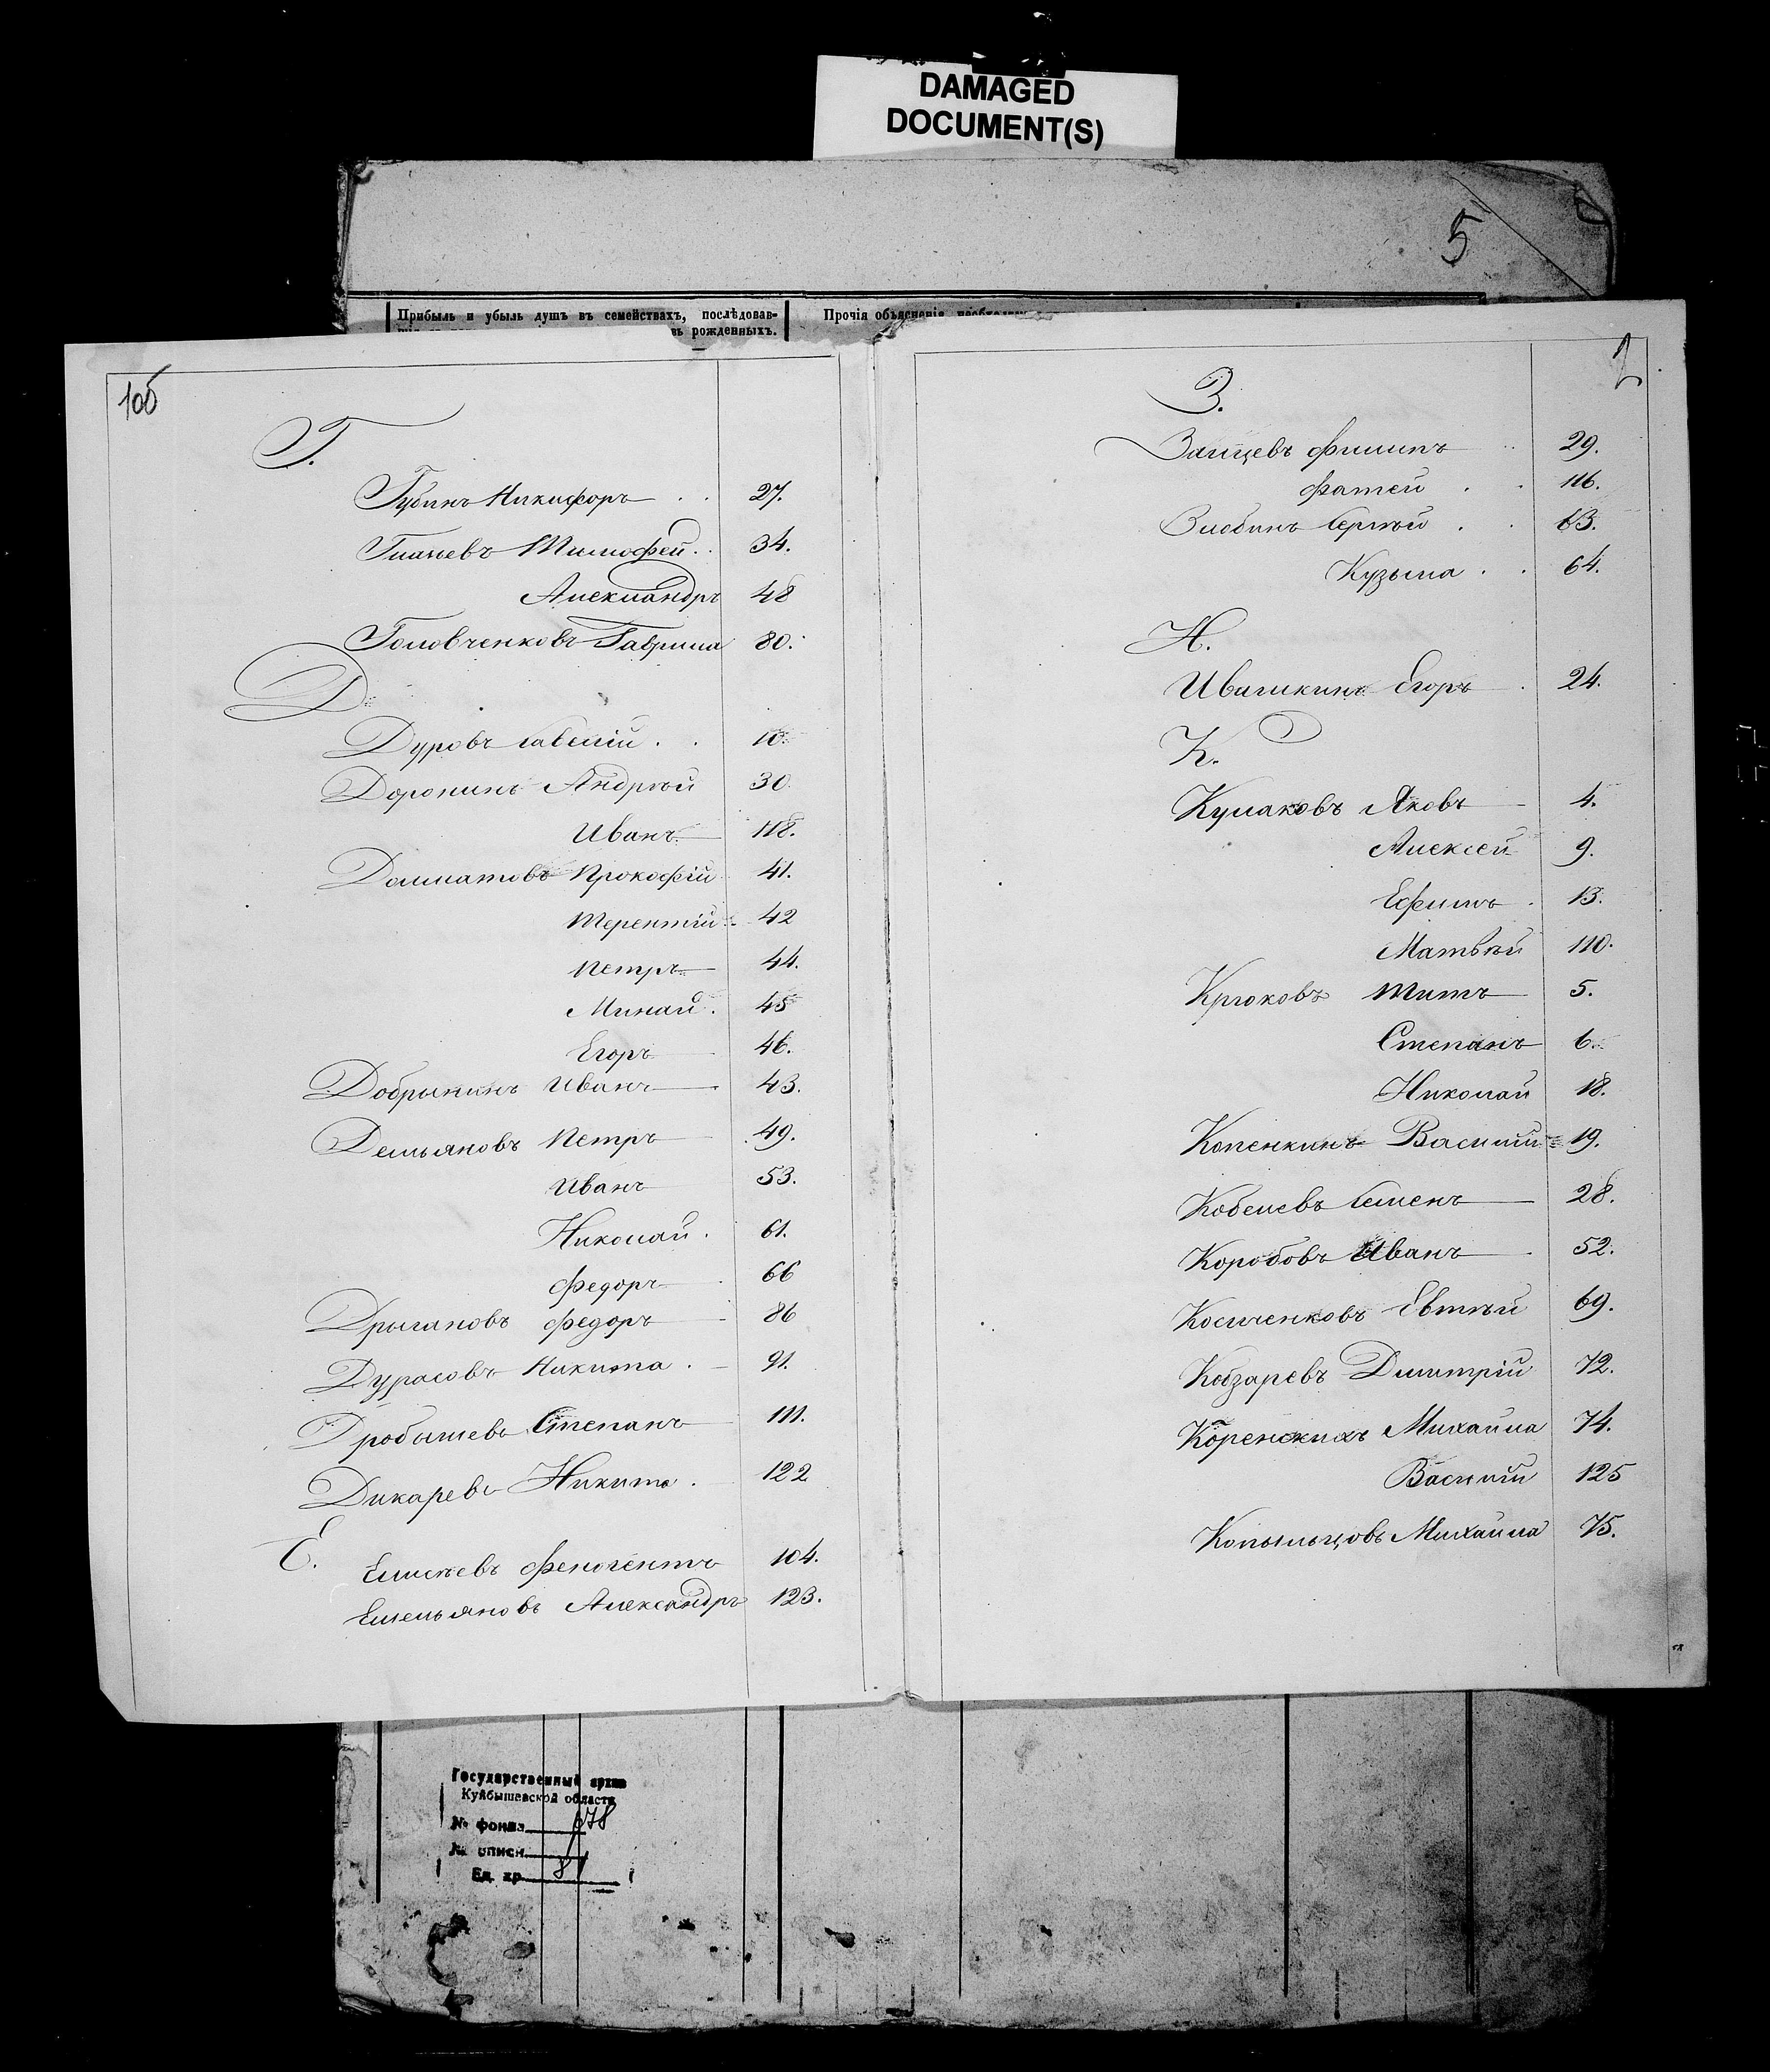 DAMAGED
DOCUMENT(S)
5
Прибыль и убыль душъ въ семействахъ, последовав-
въ рожденныхъ.
Прочія объясненія,
1об
Г.
Губинъ Никифоръ 27.
Глачевъ Тимофей 34.
Александръ 48
Головченковъ Гаврила 80.
Д.
Дуровъ Савелій 10.
Доронинъ Андрѣй 30.
Иванъ 118.
Долматовъ Прокофій 41.
Терентій 42
Петръ 44.
Минай 45
Егоръ 46.
Добрынинъ Иванъ 43.
Демьяновъ Петръ 49.
Иванъ 53.
Николай 61.
Федоръ 66
Дрыгановъ Федоръ 86
Дурасовъ Никита 91.
Дробышевъ Степанъ 111.
Дикаревъ Никита 122
Е.
Елисѣевъ Феногентъ 104.
Емельяновъ Александръ 123.
2
З.
Зайцевъ Филипъ 29.
Фатей 116.
Злобинъ Сергѣй 63.
Кузьма 64.
И.
Ивашкинъ Егоръ 24.
К.
Кулаковъ Яковъ 4.
Алексей 9.
Ефимъ 13.
Матвѣй 110.
Крюковъ Титъ 5.
Степанъ 6.
Николай 18.
Копенкинъ Василій 19.
Кобелевъ Семенъ 28.
Коробовъ Иванъ 52.
Косиченковъ Евтѣй 69.
Кобзаревъ Дмитрій 72.
Коренскихъ Михайла 74.
Василій 125
Копыльцовъ Михайла 75.
Государственный архив
Куйбышевской области
№ фонда 678
№ описи
Ед. хр. 81